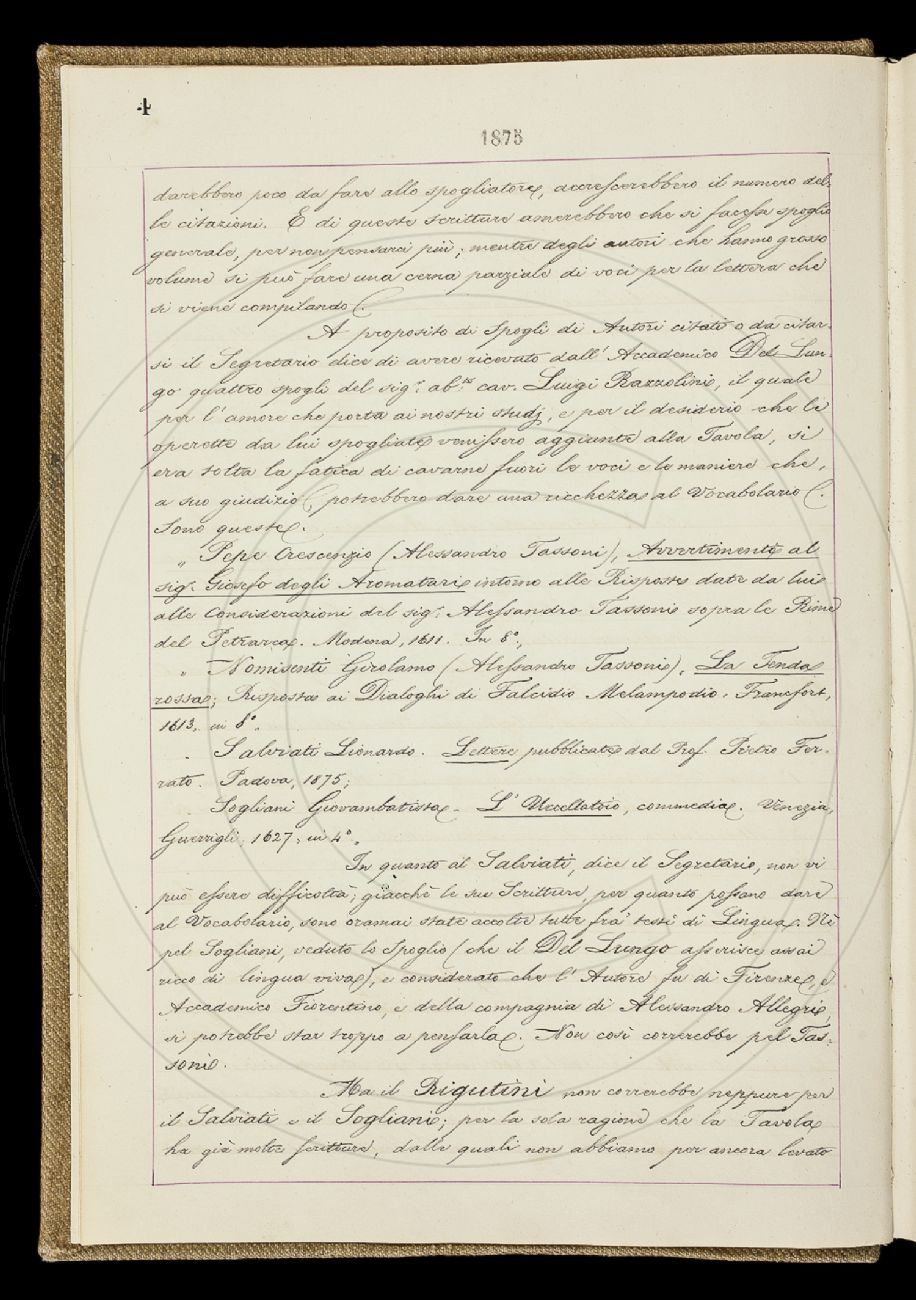 4
1875
darebbero poco da fare allo spogliatore, accrescerebbero il numero del-
le citazioni. E di queste scritture amerebbero che si facesse spoglio
generale, per non pensarci più; mentre degli autori che hanno grosso
volume si può fare una cerna parziale di voci per la lettera che
si viene compilando.
A proposito di Spogli di Autori citati o da citar-
si il Segretario dice di avere ricevuto dall' Accademico Del Lun-
go quattro spogli del sig.r ab.te cav. Luigi Razzolini, il quale
per l'amore che porta ai nostri studj, e per il desiderio che le
operette da lui spogliate venissero aggiunte alla Tavola, si
era tolta la fatica di cavarne fuori le voci e le maniere che,
a suo giudizio, potrebbero dare una ricchezza al Vocabolario.
Sono queste.
„ Pepe Crescenzio (Alessandro Tassoni), Avvertimenti al
sig.r Giosefo degli Aromatari intorno alle Risposte date da lui
alle Considerazioni del sig.r Alessandro Tassoni sopra le Rime
del Petrarca. Modena, 1611. In 8°,
„ Nomisenti Girolamo (Alessandro Tassoni), La Tenda
rossa; Risposta ai Dialoghi di Falcidio Melampodio. Francfort,
1613, in 8°.
Salviati Lionardo. Lettere pubblicate dal Prof. Pietro Fer-
rato. Padova, 1875;
Sogliani Giovambatista. L'Uccellatoio, commedia. Venezia,
Guerrigli, 1627, in 4°.
In quanto al Salviati, dice il Segretario, non vi
può essere difficoltà, giacchè le sue Scritture, per quanto possano dare
al Vocabolario, sono oramai state accolte tutte fra' testi di Lingua. Nè
pel Sogliani, veduto lo Spoglio (che il Del Lungo asserisce assai
ricco di lingua viva), e considerato che l'Autore fu di Firenze, e
Accademico Fiorentino, e della compagnia di Alessandro Allegri,
si potrebbe star troppo a pensarla. Non così correrebbe pel Tas-
soni.
Ma il Rigutini non correrebbe neppure per
il Salviati e il Sogliani; per la sola ragione che la Tavola
ha già molte scritture, dalle quali non abbiamo per ancora levato